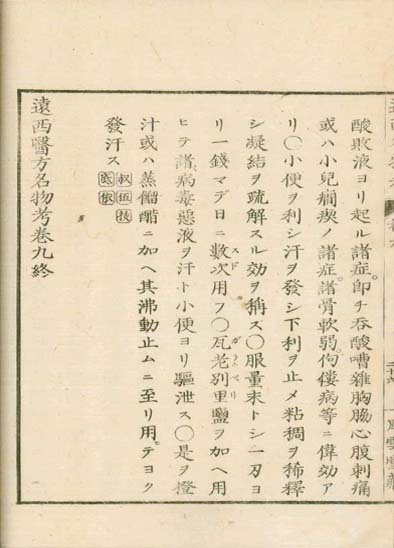 酸敗液ヨリ起ル諸症。卽チ呑酸嘈雜胸膓心腹刺痛
或ハ小兒癇瘈ノ諸症。諸骨軟弱。佝僂病等ニ偉効ア
リ〇小便ヲ利シ汗ヲ發シ下利ヲ止メ粘稠ヲ稀釋
シ凝結ヲ疏解スル効ヲ稱ス〇服量末トシ一刃ヨ
リ一錢マデ日ニ數次用フ〇瓦老別里鹽ヲ加ヘ用
ヒテ諸病毒惡液ヲ汗ト小便ヨリ驅泄ス〇是ヲ橙
汁或ハ蒸餾醋ニ加ヘ其沸動止ムニ至リ用。テヨク
發汗ス
遠西醫方名物考卷九終